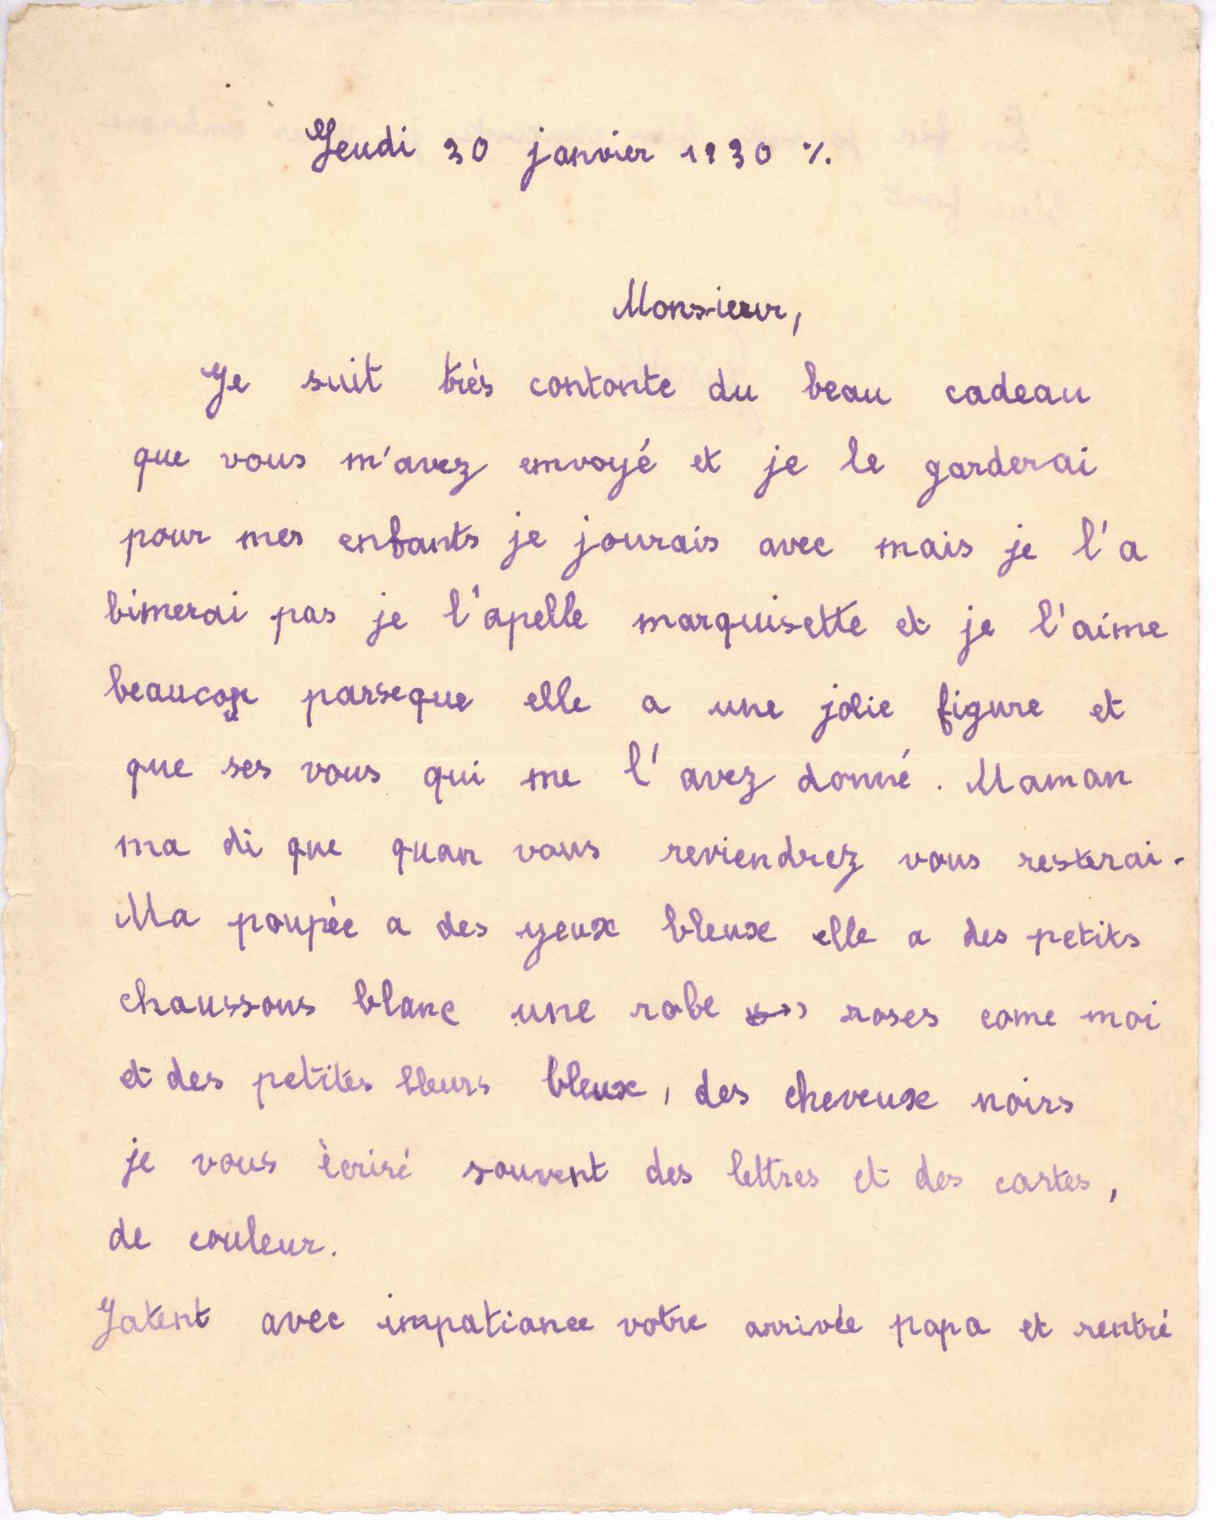 Jeudi 30 janvier 1930 %.
Monsieur,
Je suit très contonte du beau cadeau
que vous m'avez envoyé et je le garderai
pour mes enfants je jourais avec mais je l'a
bimerai pas je l'apelle marquisette et je l'aime
beaucoup parseque elle a une jolie figure et
que ses vous qui me l'avez donné. Maman
ma di que quan vous reviendrez vous resterai.
Ma poupée a des yeux bleux elle a des petits
chaussons blanc une robe roses come moi
et des petites fleurs bleux, des cheveux noirs
je vous ècriré souvent des lettres et des cartes,
de couleur.
Jatent avec impatiance votre arrivée papa et rentré